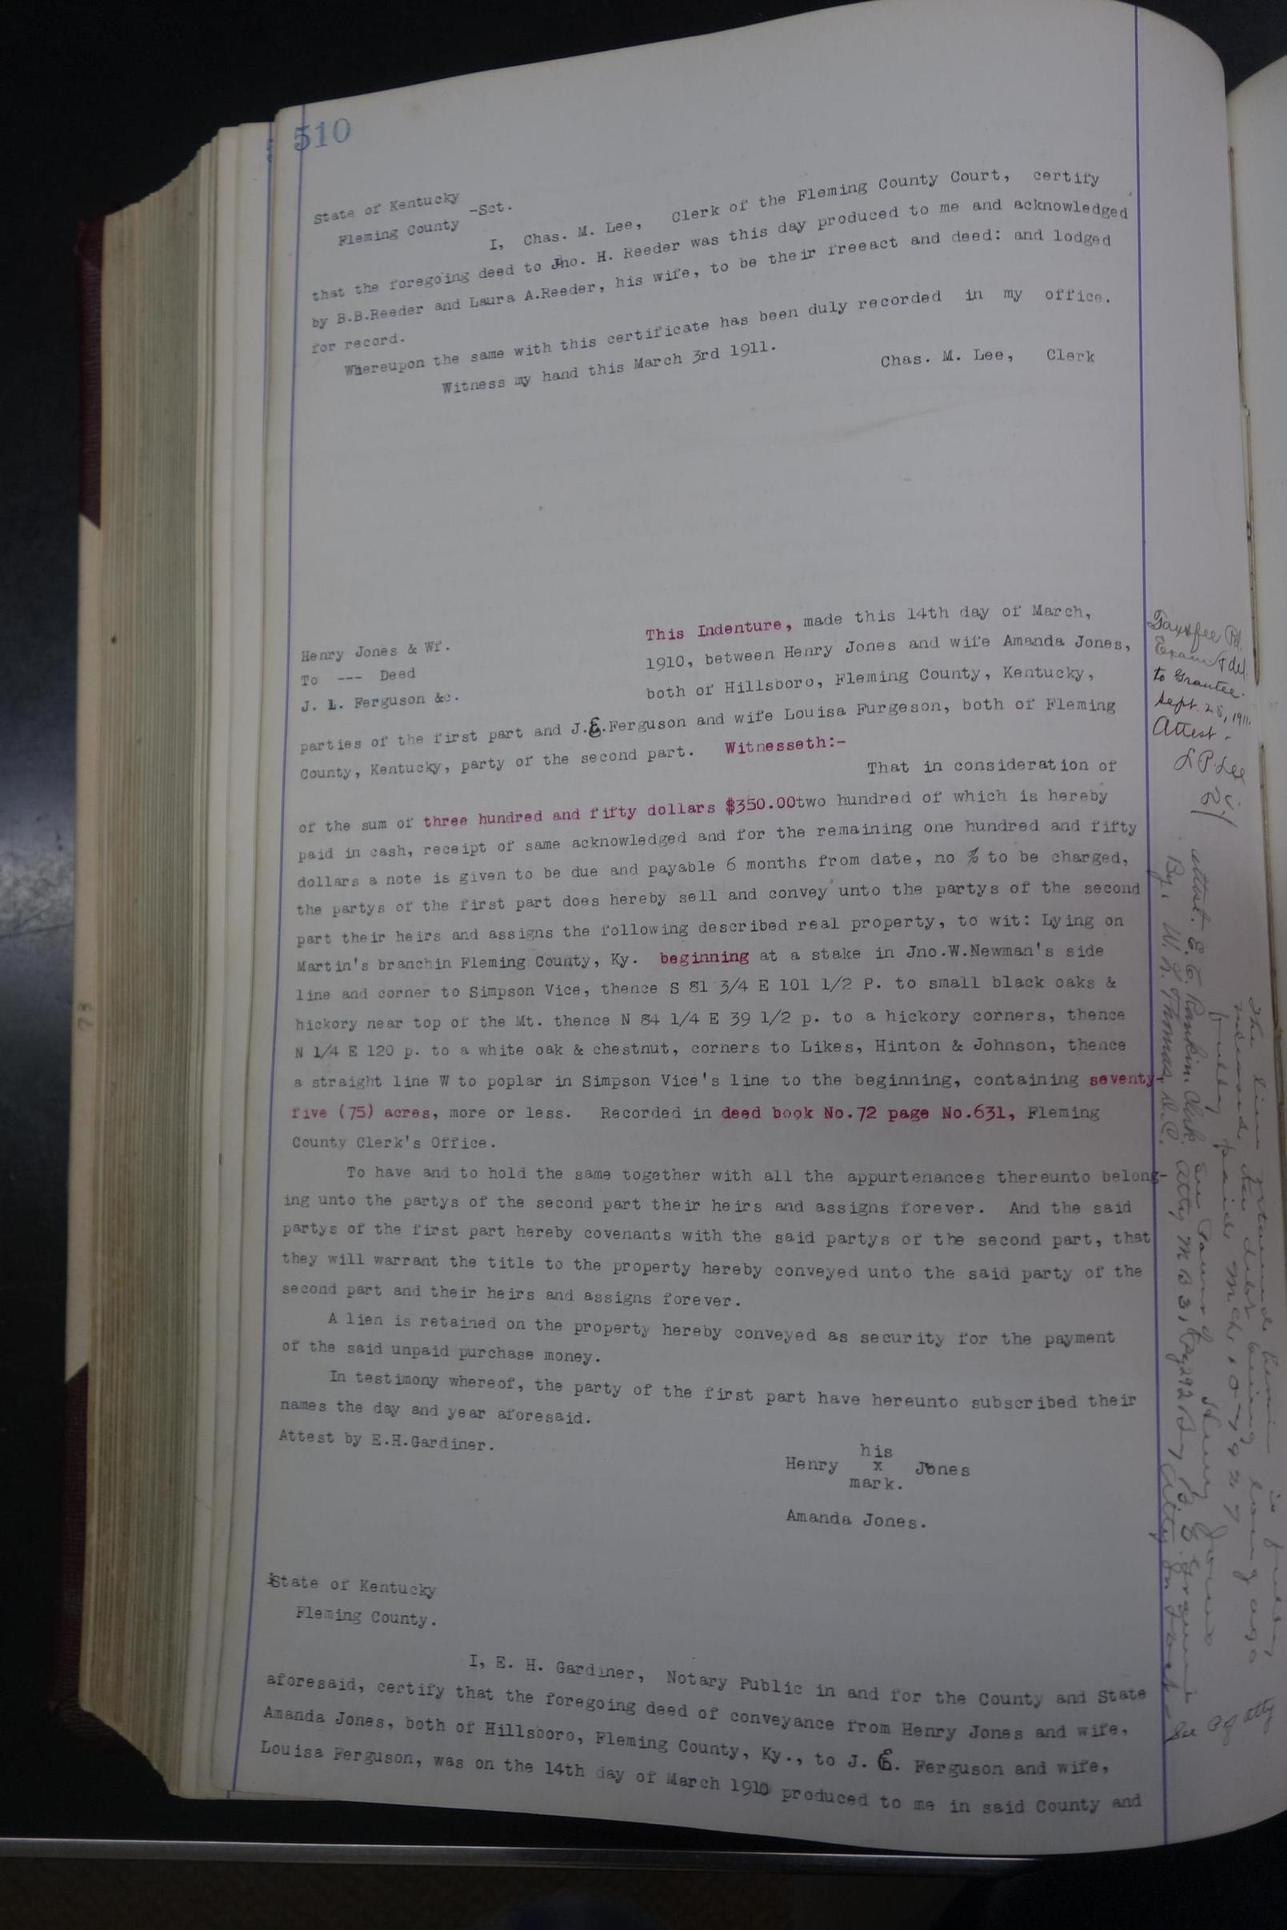 510
State of Kentucky
Fleming County -Sct.
I, Chas. M. Lee, Clerk of the Fleming County Court, certify
that the foregoing deed to Jno. H. Reeder was this day produced to me and acknowledged
by B.B.Reeder and Laura A.Reeder, his wife, to be their freeact and deed: and lodged
for record.
Whereupon the same with this certificate has been duly recorded in my office.
Witness my hand this March 3rd 1911.
Chas. M. Lee, Clerk
Henry Jones & Wf.
To --- Deed
J. L. Ferguson &c.
This Indenture, made this 14th day of March,
1910, between Henry Jones and wife Amanda Jones,
both of Hillsboro, Fleming County, Kentucky,
parties of the first part and J.E.Ferguson and wife Louisa Furgeson, both of Fleming
County, Kentucky, party of the second part. Witnesseth:-
That in consideration of
of the sum of three hundred and fifty dollars $350.00two hundred of which is hereby
paid in cash, receipt of same acknowledged and for the remaining one hundred and fifty
dollars a note is given to be due and payable 6 months from date, no % to be charged,
the partys of the first part does hereby sell and convey unto the partys of the second
part their heirs and assigns the following described real property, to wit: Lying on
Martin's branchin Fleming County, Ky. beginning at a stake in Jno.W.Newman's side
line and corner to Simpson Vice, thence S 81 3/4 E 101 1/2 P. to small black oaks &
hickory near top of the Mt. thence N 84 1/4 E 39 1/2 p. to a hickory corners, thence
N 1/4 E 120 p. to a white oak & chestnut, corners to Likes, Hinton & Johnson, thence
a straight line W to poplar in Simpson Vice's line to the beginning, containing seventy-
five (75) acres, more or less. Recorded in deed book No.72 page No.631, Fleming
County Clerk's Office.
To have and to hold the same together with all the appurtenances thereunto belong-
ing unto the partys of the second part their heirs and assigns forever. And the said
partys of the first part hereby covenants with the said partys of the second part, that
they will warrant the title to the property hereby conveyed unto the said party of the
second part and their heirs and assigns forever.
A lien is retained on the property hereby conveyed as security for the payment
of the said unpaid purchase money.
In testimony whereof, the party of the first part have hereunto subscribed their
names the day and year aforesaid.
Attest by E.H.Gardiner.
his
Henry x Jones
mark.
Amanda Jones.
State of Kentucky
Fleming County.
I, E. H. Gardiner, Notary Public in and for the County and State
aforesaid, certify that the foregoing deed of conveyance from Henry Jones and wife,
Amanda Jones, both of Hillsboro, Fleming County, Ky., to J. E. Ferguson and wife,
Louisa Ferguson, was on the 14th day of March 1910 produced to me in said County and
Tax & fee Pd.
Exam & del
to Grantee.
Sept. 28, 1911.
Attest.
L P Lee
D.C.
The lien retained herein is
released the debt being long ago
fully paid. Mch. 10-1927
Henry Jones
By B. E.
Attest. E. E. Rankin, Clerk
By. W. S. Thomas, D.C.
Atty M B 3, Pg 292